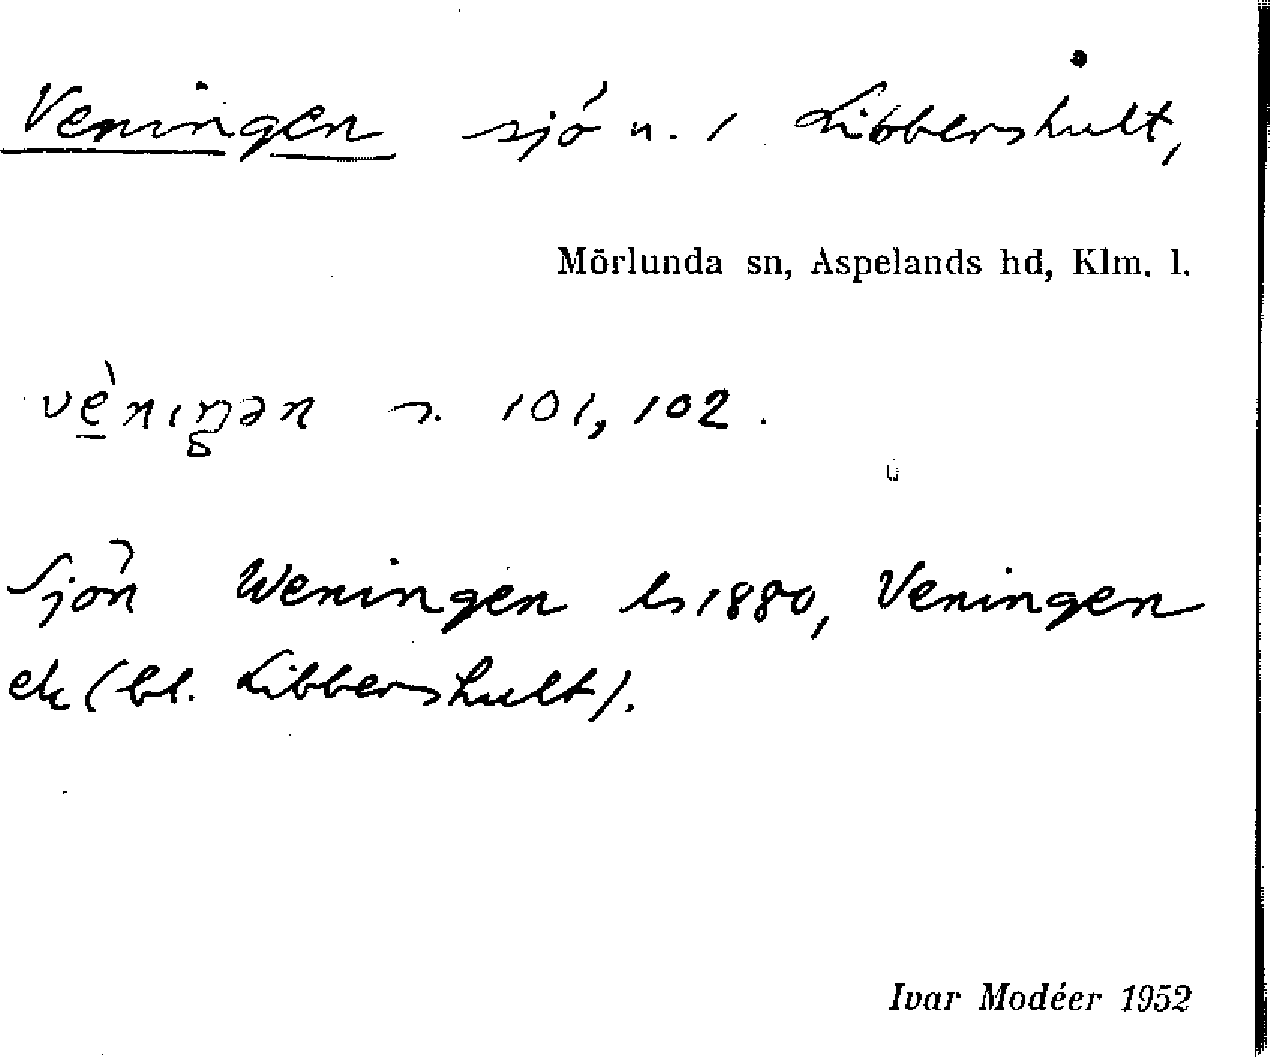 Veningen sjö n. 1 Libbershult,
Mörlunda sn, Aspelands hd, Klm. l.
101, 102.
Sjön Weningen ls 1880, Veningen
ek (bl. Libbershult).
Ivar Modéer 1952